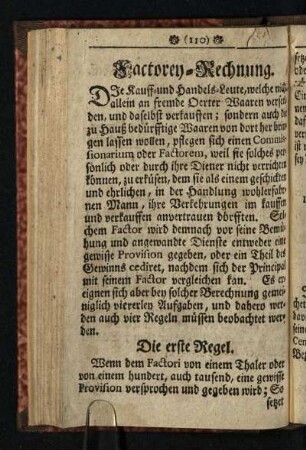 (110)
Factorey-Rechnung.
DIe Kauff-und Handels-Leute, welche nicht
allein an fremde Oerter Waaren versen-
den, und daselbst verkauffen; sondern auch die
zu Hauß bedürfftige Waaren von dort her brin-
gen lassen wollen, pflegen sich einen Commis-
sionarium oder Factorem, weil sie solches per-
söhnlich oder durch ihre Diener nicht verrichten
können, zu erkiesen, dem sie als einem geschickten
und ehrlichen, in der Handlung wohlerfahr-
nen Mann, ihre Verkehrungen im kauffen
und verkauffen anvertrauen dörfften. Sol-
chem Factor wird demnach vor seine Bemü-
hung und angewandte Dienste entweder eine
gewisse Provision gegeben, oder ein Theil des
Gewinns cediret, nachdem sich der Principal
mit seinem Factor vergleichen kan. Es er-
eignen sich aber bey solcher Berechnung gemei-
niglich viererley Aufgaben, und dahero wer-
den auch vier Regeln müssen beobachtet wer-
den.
Die erste Regel.
Wenn dem Factori von einem Thaler oder
von einem hundert, auch tausend, eine gewisse
Provision versprochen und gegeben wird; So
setzet